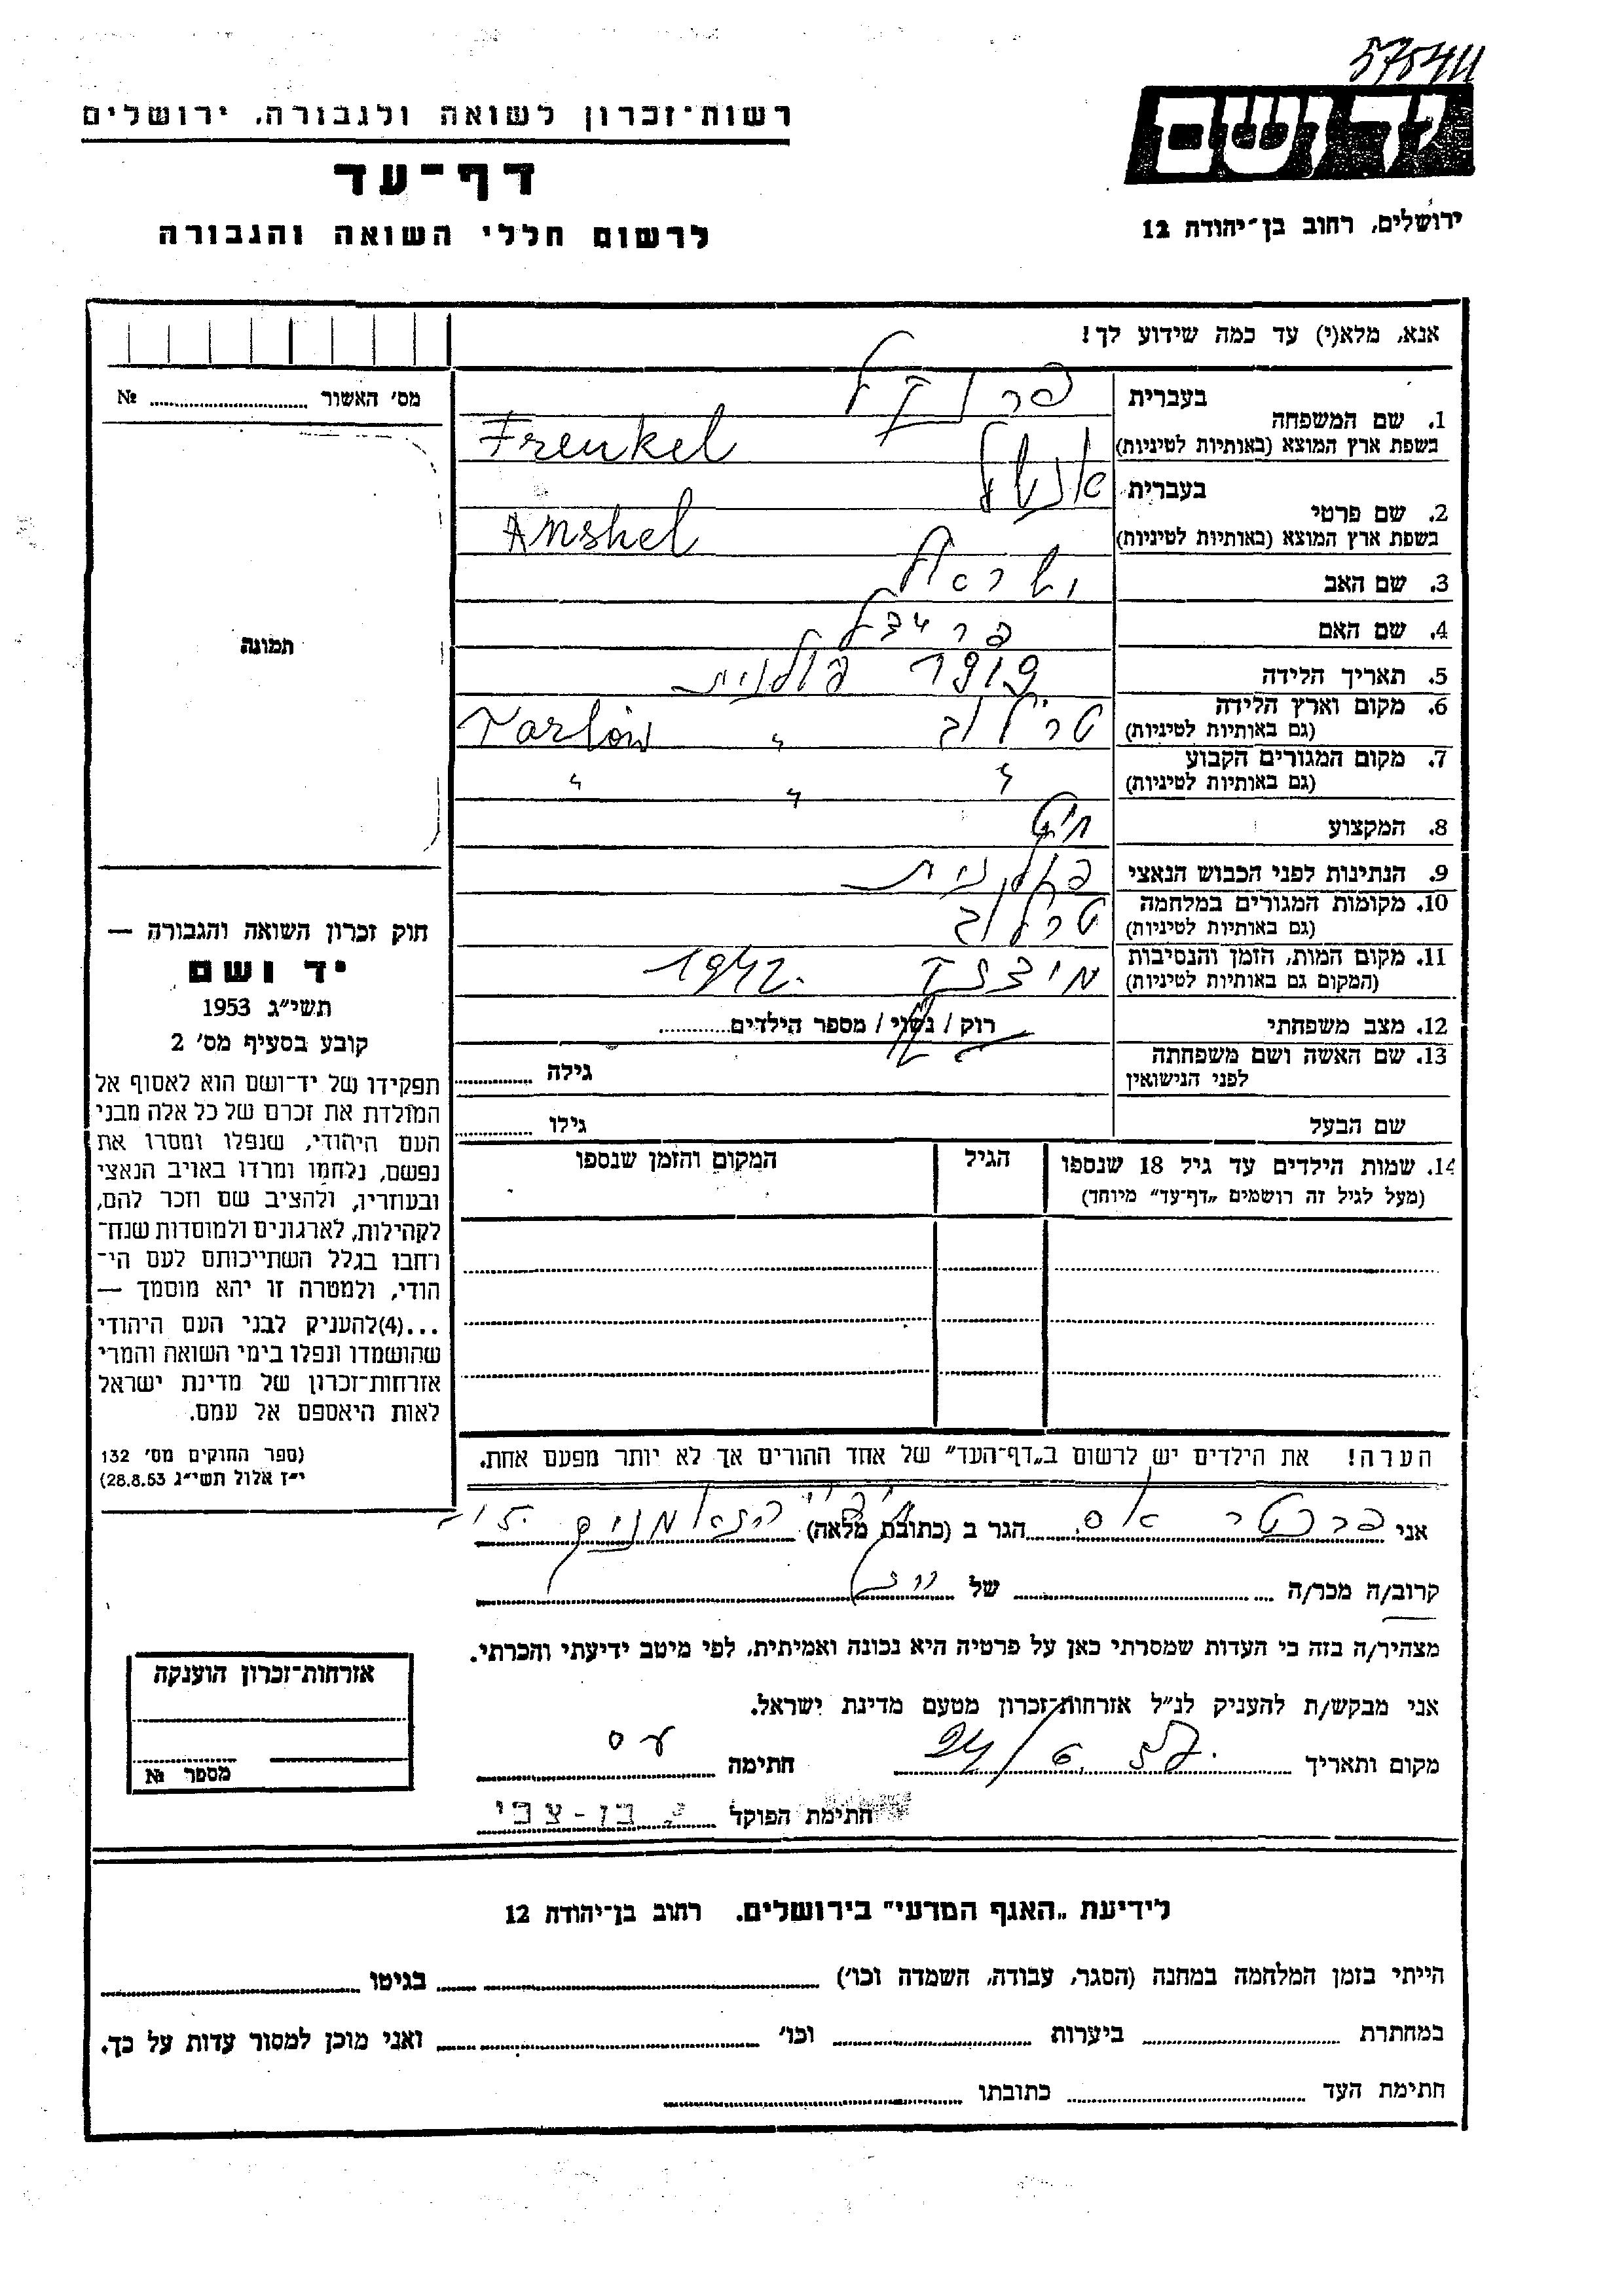 יד ושם
ירושלים, רחוב בן־יהודה 12
רשות־זכרון לשואה ולגבורה, ירושלים
דף־עד
לרשום חללי השואה והגבורה
אנא, מלא(י) עד כמה שידוע לך!
1. שם המשפחה
בעברית פרנקל
בשפת ארץ המוצא (באותיות לטיניות) Frenkel
2. שם פרטי
בעברית אנשל
בשפת ארץ המוצא (באותיות לטיניות) Anshel
3. שם האב
4. שם האם
5. תאריך הלידה 1919
6. מקום וארץ הלידה
(גם באותיות לטיניות) Tarlów
7. מקום המגורים הקבוע
(גם באותיות לטיניות) " " "
8. המקצוע חיט
9. הנתינות לפני הכבוש הנאצי פולנית
10. מקומות המגורים במלחמה
(גם באותיות לטיניות) טרלוב
11. מקום המות, הזמן והנסיבות
(המקום גם באותיות לטיניות) 1942.
12. מצב משפחתי רוק / נשוי / מספר הילדים
13. שם האשה ושם משפחתה
לפני הנישואין גילה
שם הבעל גילו
14. שמות הילדים עד גיל 18 שנספו
(מעל לגיל זה רושמים „דף־עד" מיוחד)
הגיל
המקום והזמן שנספו
הערה! את הילדים יש לרשום ב„דף־העד" של אחד ההורים אך לא יותר מפעם אחת.
מס׳ האשור № ....
תמונה
חוק זכרון השואה והגבורה —
יד ושם
תשי״ג 1953
קובע בסעיף מס׳ 2
תפקידו של יד־ושם הוא לאסוף אל
המולדת את זכרם של כל אלה מבני
העם היהודי, שנפלו ומסרו את
נפשם, נלחמו ומרדו באויב הנאצי
ובעוזריו, ולהציב שם וזכר להם,
לקהילות, לארגונים ולמוסדות שנח־
רחבו בגלל השתייכותם לעם הי־
הודי, ולמטרה זו יהא מוסמך —
...(4)להעניק לבני העם היהודי
שהושמדו ונפלו בימי השואה והמרי
אזרחות־זכרון של מדינת ישראל
לאות היאספם אל עמם.
(ספר החוקים מס׳ 132
י״ז אלול תשי״ג 28.8.53)
אני הגר ב (כתובת מלאה)
קרוב/ה מכר/ה של
מצהיר/ה בזה כי העדות שמסרתי כאן על פרטיה היא נכונה ואמיתית, לפי מיטב ידיעתי והכרתי.
אני מבקש/ת להעניק לנ״ל אזרחות־זכרון מטעם מדינת ישראל.
מקום ותאריך חתימה
חתימת הפוקד בן-צבי
אזרחות־זכרון הוענקה
מספר №
לידיעת „האגף המדעי" בירושלים, רחוב בן־יהודה 12
הייתי בזמן המלחמה במחנה (הסגר, עבודה, השמדה וכו׳) בגיטו
במחתרת ביערות וכו׳ ואני מוכן למסור עדות על כך.
חתימת העד כתובתו